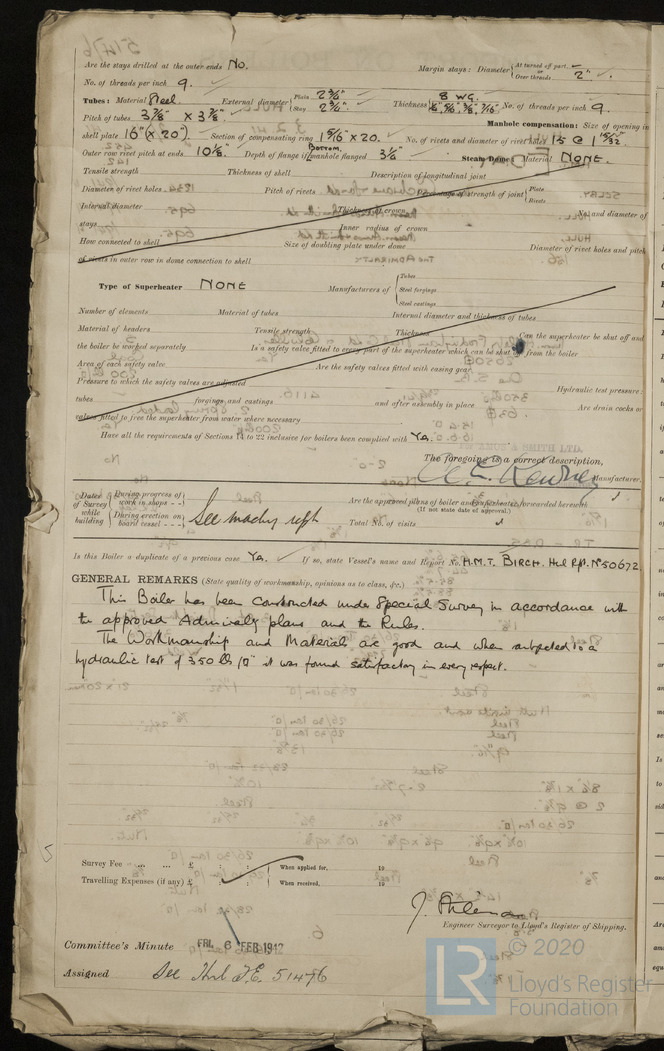 Are the stays drilled at the outer ends No. Margin stays: Diameter { At turned off part. or Over threads 2"
No. of threads per inch 9.
Tubes: Material Steel. External diameter { Plain 2¾" Stay 2¾" Thickness { 8 W.G. 5/16, 3/8, 7/16" No. of threads per inch 9.
Pitch of tubes 3⅞" x 3⅞" Manhole compensation: Size of opening in
shell plate 16" (x 20") Section of compensating ring 15/16" x 20. No. of rivets and diameter of rivet holes 15 @ 1 5/32".
Outer row rivet pitch at ends 10⅛" Depth of flange if manhole flanged Bottom 3½" Steam Dome: Material NONE.
Tensile strength Thickness of shell Description of longitudinal joint
Diameter of rivet holes Pitch of rivets Percentage of strength of joint { Plate Rivets
Internal diameter Thickness of crown No. and diameter of
stays Inner radius of crown
How connected to shell Size of doubling plate under dome Diameter of rivet holes and pitch
of rivets in outer row in dome connection to shell
Type of Superheater NONE Manufacturers of { Tubes Steel forgings Steel castings
Number of elements Material of tubes Internal diameter and thickness of tubes
Material of headers Tensile strength Thickness Can the superheater be shut off and
the boiler be worked separately Is a safety valve fitted to every part of the superheater which can be shut off from the boiler
Area of each safety valve Are the safety valves fitted with easing gear
Pressure to which the safety valves are adjusted Hydraulic test pressure:
tubes forgings and castings and after assembly in place Are drain cocks or
valves fitted to free the superheater from water where necessary
Have all the requirements of Sections to 22 inclusive for boilers been complied with Yes.
The foregoing is a correct description,
Manufacturer.
Dates of Survey while building { During progress of work in shops - - During erection on board vessel - - - } See machy rept
Are the approved plans of boiler and superheater forwarded herewith
(If not state date of approval.)
Total No. of visits
Is this Boiler a duplicate of a previous case Yes. If so, state Vessel's name and Report No. H.M.T. BIRCH. Hul Rpt. No 50672
GENERAL REMARKS (State quality of workmanship, opinions as to class, &c.)
This Boiler has been constructed under Special Survey in accordance with
the approved Admiralty plans and the Rules.
The Workmanship and Materials are good and when subjected to a
hydraulic test of 350 lbs /□" it was found satisfactory in every respect.
Survey Fee ... ... £ : : } When applied for, 19
Travelling Expenses (if any) £ : : } When received, 19
Engineer Surveyor to Lloyd's Register of Shipping.
Committee's Minute FRI. 6 FEB 1942
Assigned See Hul F.E. 51476
© 2020
Lloyd's Register
Foundation
LR